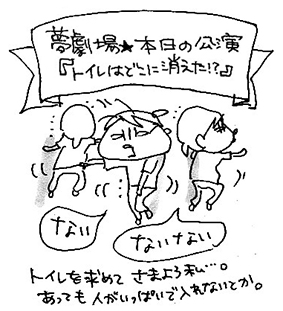 夢劇場★本日の公演
『トイレはどこに消えた!?』
ない
ないない
トイレを求めて さまよう私…。
あっても人がいっぱいで入れないとか。